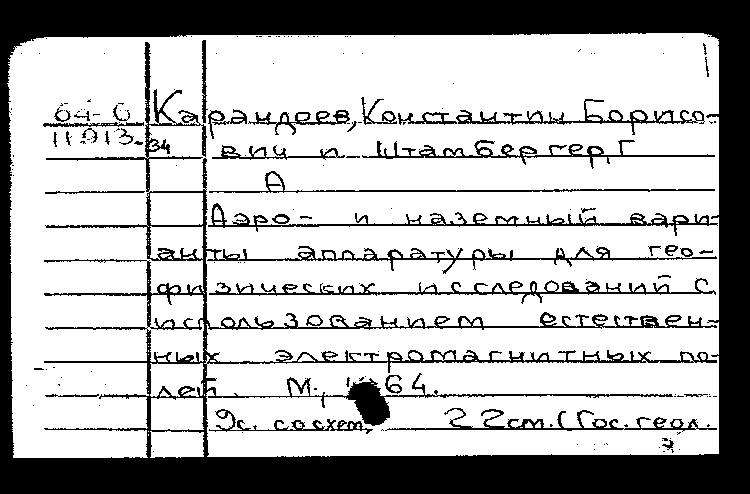 64-6 Карандеев, Константин Борисо-
11913-34 вич и Штамбергер, Г
А
Аэро- и наземный вари-
анты аппаратуры для гео-
физических исследований с
использованием естествен-
ных электромагнитных по-
лей. М., 1964.
9с. со схем, 22см. (Гос. геол.